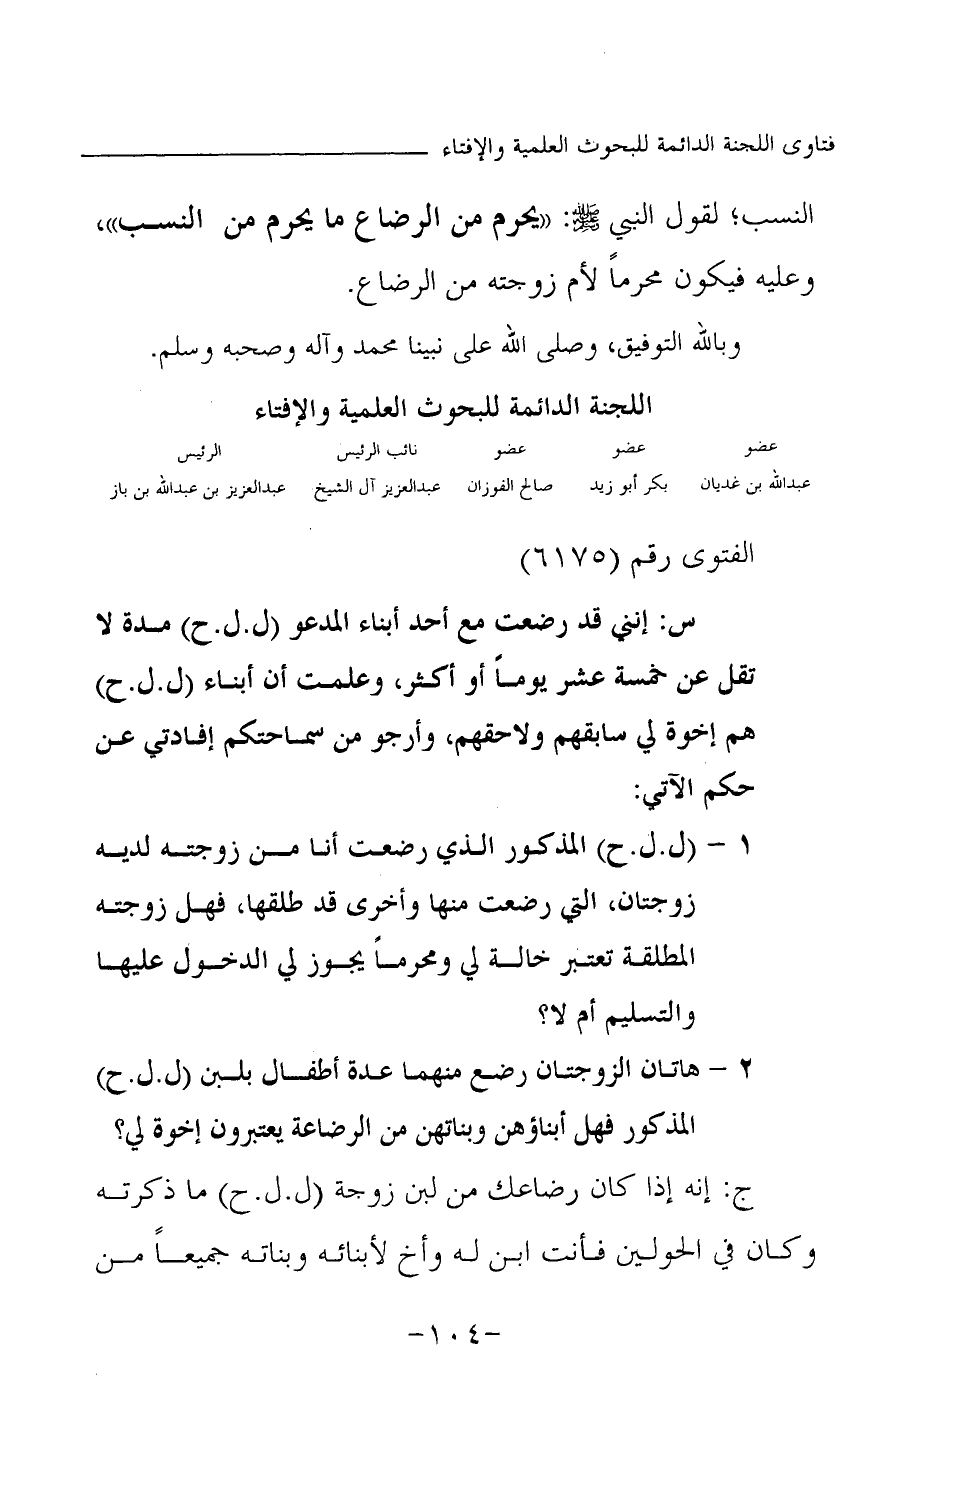 فتاوى اللجنة الدائمة للبحوث العلمية والإفتاء
النسب؛ لقول النبي ﷺ: «يحرم من الرضاع ما يحرم من النسب»،
وعليه فيكون محرماً لأم زوجته من الرضاع.
وبالله التوفيق، وصلى الله على نبينا محمد وآله وصحبه وسلم.
اللجنة الدائمة للبحوث العلمية والإفتاء
عضو عضو عضو نائب الرئيس الرئيس
عبدالله بن غديان بكر أبو زيد صالح الفوزان عبدالعزيز آل الشيخ عبدالعزيز بن عبدالله بن باز
الفتوى رقم (٦١٧٥)
س: إنني قد رضعت مع أحد أبناء المدعو (ل.ل.ح) مدة لا
تقل عن خمسة عشر يوماً أو أكثر، وعلمت أن أبناء (ل.ل.ح)
هم إخوة لي سابقهم ولاحقهم، وأرجو من سماحتكم إفادتي عن
حكم الآتي:
١ – (ل.ل.ح) المذكور الذي رضعت أنا من زوجته لديه
زوجتان، التي رضعت منها وأخرى قد طلقها، فهل زوجته
المطلقة تعتبر خالة لي ومحرماً يجوز لي الدخول عليها
والتسليم أم لا؟
٢ – هاتان الزوجتان رضع منهما عدة أطفال بلبن (ل.ل.ح)
المذكور فهل أبناؤهن وبناتهن من الرضاعة يعتبرون إخوة لي؟
ج: إنه إذا كان رضاعك من لبن زوجة (ل.ل.ح) ما ذكرته
وكان في الحولين فأنت ابن له وأخ لأبنائه وبناته جميعاً من
-١٠٤-